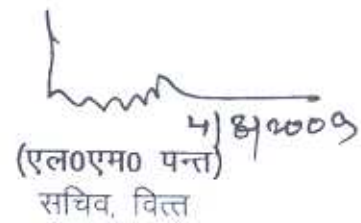 4/8/2009
(एल0एम0 पन्त)
सचिव, वित्त